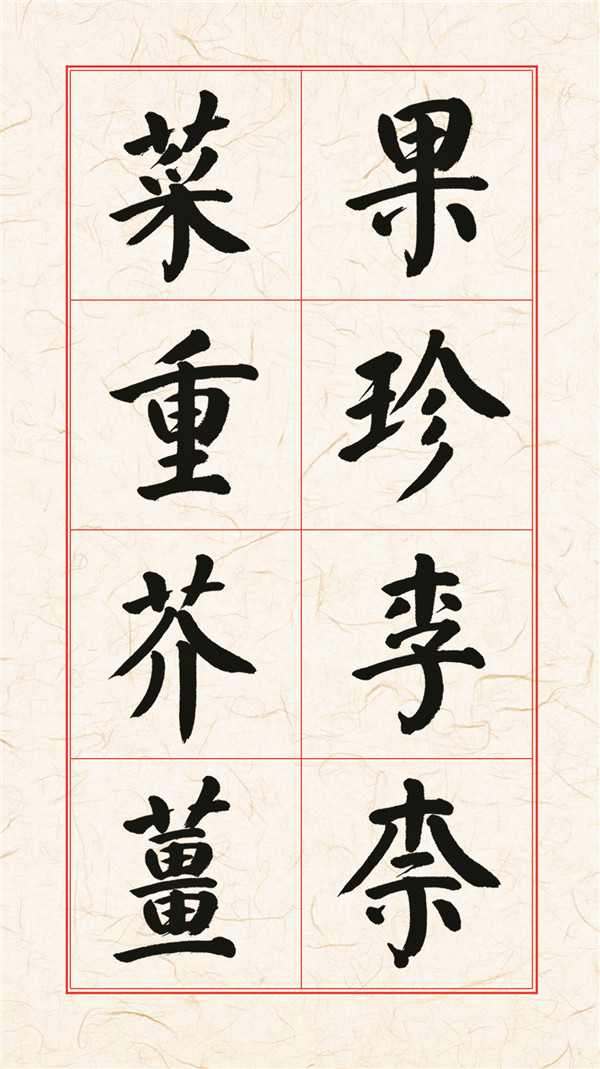 果珍李柰
菜重芥薑